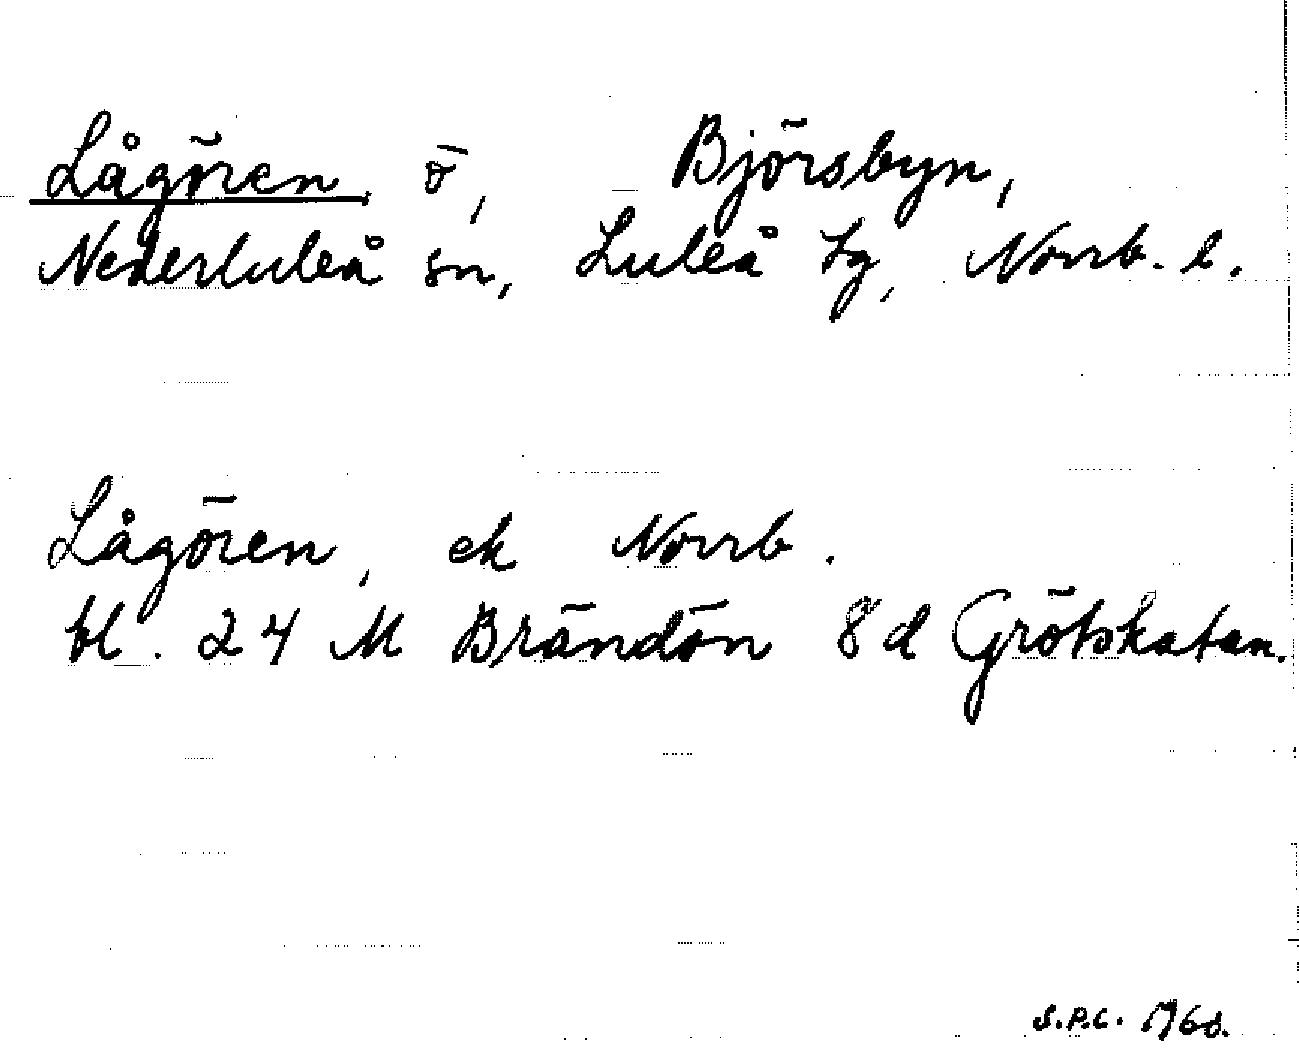 Lågören, ö, Björsbyn,
Nederluleå sn, Luleå tg, Norrb. l.
Lågören, ek Norrb.
bl. 24 M Brändön 8d Grötskatan.
S.P.C. 1968.